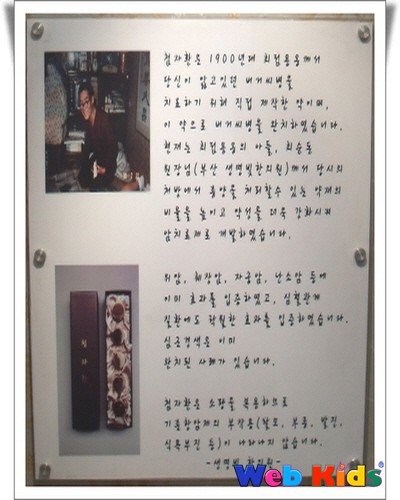 첨자환은 1900년대 최정응옹께서
당신이 앓고있던 버거씨병을
치료하기 위해 직접 제작한 약이며,
이 약으로 버거씨병을 완치하였습니다.
현재는 최정응옹의 아들, 최승동
원장님(부산 생명빛한의원)께서 당시의
처방에서 종양을 치료할수 있는 약재의
비율을 높이고 약성을 더욱 강화시켜
암치료제로 개발하였습니다.
위암, 췌장암, 자궁암, 난소암 등에
이미 효과를 입증하였고, 심혈관계
질환에도 탁월한 효과를 입증하였습니다.
심근경색은 이미
완치된 사례가 있습니다.
첨자환은 소량을 복용하므로
기존항암제의 부작용(탈모, 부종, 발진,
식욕부진 등)이 나타나지 않습니다.
-생명빛 한의원-
첨자환
Web Kids